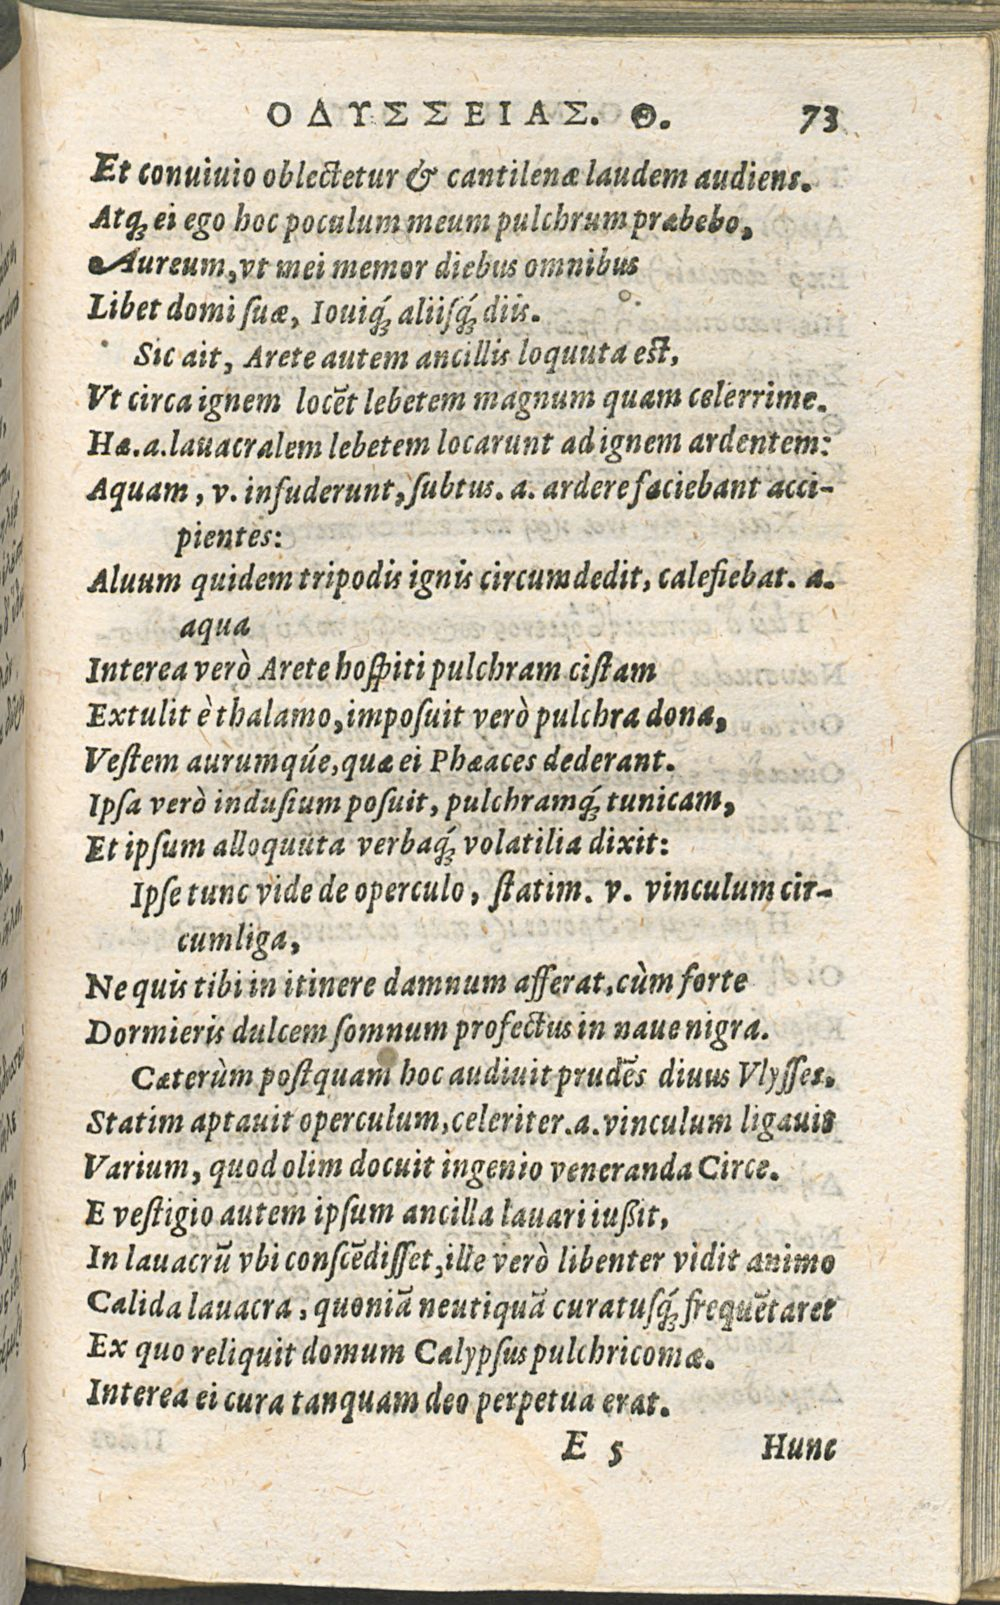 ΟΔΥΣΣΕΙΑΣ. Θ. 73
Et conuiuio oblectetur & cantilenæ laudem audiens.
Atq; ei ego hoc poculum meum pulchrum præbebo,
Aureum, vt mei memor diebus omnibus
Libet domi suæ, Iouiq́; aliisq́; diis.
Sic ait, Arete autem ancillis loquuta est,
Vt circa ignem locēt lebetem magnum quam celerrime.
Hæ. a. lauacralem lebetem locarunt ad ignem ardentem:
Aquam, v. infuderunt, subtus. a. ardere faciebant acci-
pientes:
Aluum quidem tripodis ignis circumdedit, calefiebat. a.
aqua
Interea verò Arete hospiti pulchram cistam
Extulit è thalamo, imposuit verò pulchra dona,
Vestem aurumqúe, quæ ei Phæaces dederant.
Ipsa verò indusium posuit, pulchramq́; tunicam,
Et ipsum alloquuta verbaq́; volatilia dixit:
Ipse tunc vide de operculo, statim. v. vinculum cir-
cumliga,
Ne quis tibi in itinere damnum afferat, cùm forte
Dormieris dulcem somnum profectus in naue nigra.
Cæterùm postquam hoc audiuit prudēs diuus Vlysses.
Statim aptauit operculum, celeriter. a. vinculum ligauit
Varium, quod olim docuit ingenio veneranda Circe.
E vestigio autem ipsum ancilla lauari iußit,
In lauacrū vbi conscēdisset, ille verò libenter vidit animo
Calida lauacra, quoniā neutiquā curatusq́; frequētaret
Ex quo reliquit domum Calypsus pulchricomæ.
Interea ei cura tanquam deo perpetua erat.
E 5 Hunc